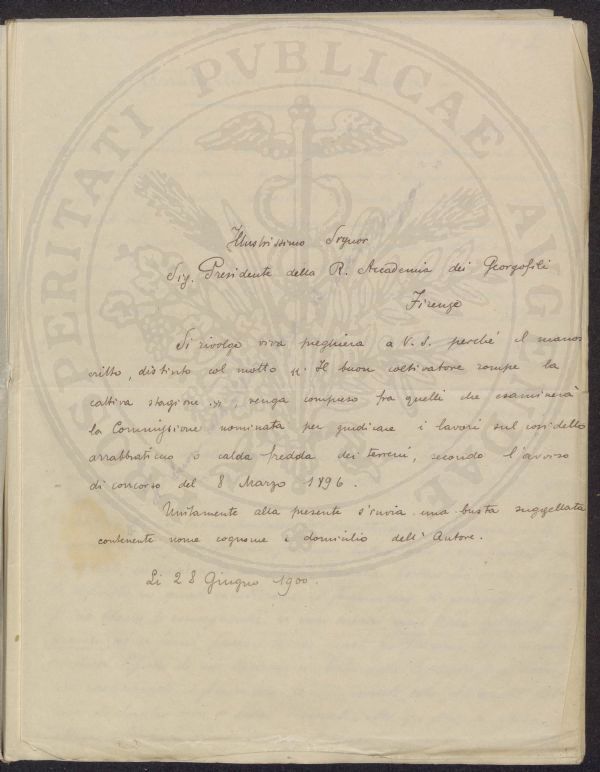 PROSPERITATI PVBLICAE AVGENDAE
Illustrissimo Signor
Sig. Presidente della R. Accademia dei Georgofili
Firenze
Si rivolge viva preghiera a V. S. perché il manos
critto, distinto col motto "Il buon coltivatore rompe la
cattiva stagione", venga compreso fra quelli che esaminerà
la Commissione nominata per giudicare i lavori sul così detto
arrabbiaticcio o calda fredda dei terreni, secondo l'avviso
di concorso del 8 Marzo 1896.
Unitamente alla presente s'invia una busta suggellata
contenente nome cognome e domicilio dell'Autore.
Li 28 Giugno 1900.